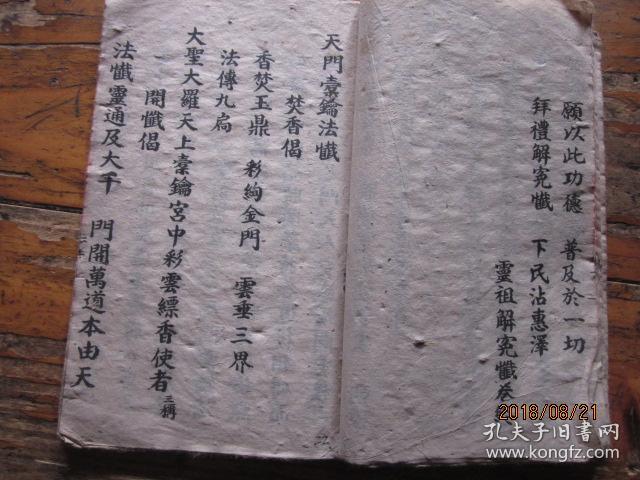 願以此功德　普及於一切
拜禮解冤懺　下民沾惠澤
靈祖解冤懺卷
天門橐鑰法懺
焚香偈
香焚玉鼎　彩絢金門　雲垂三界
法傳九扃
大聖大羅天上橐鑰宮中彩雲縹香使者三稱
開懺偈
法懺靈通及大千　門開萬道本由天
2018/08/21
孔夫子旧书网
www.kongfz.com